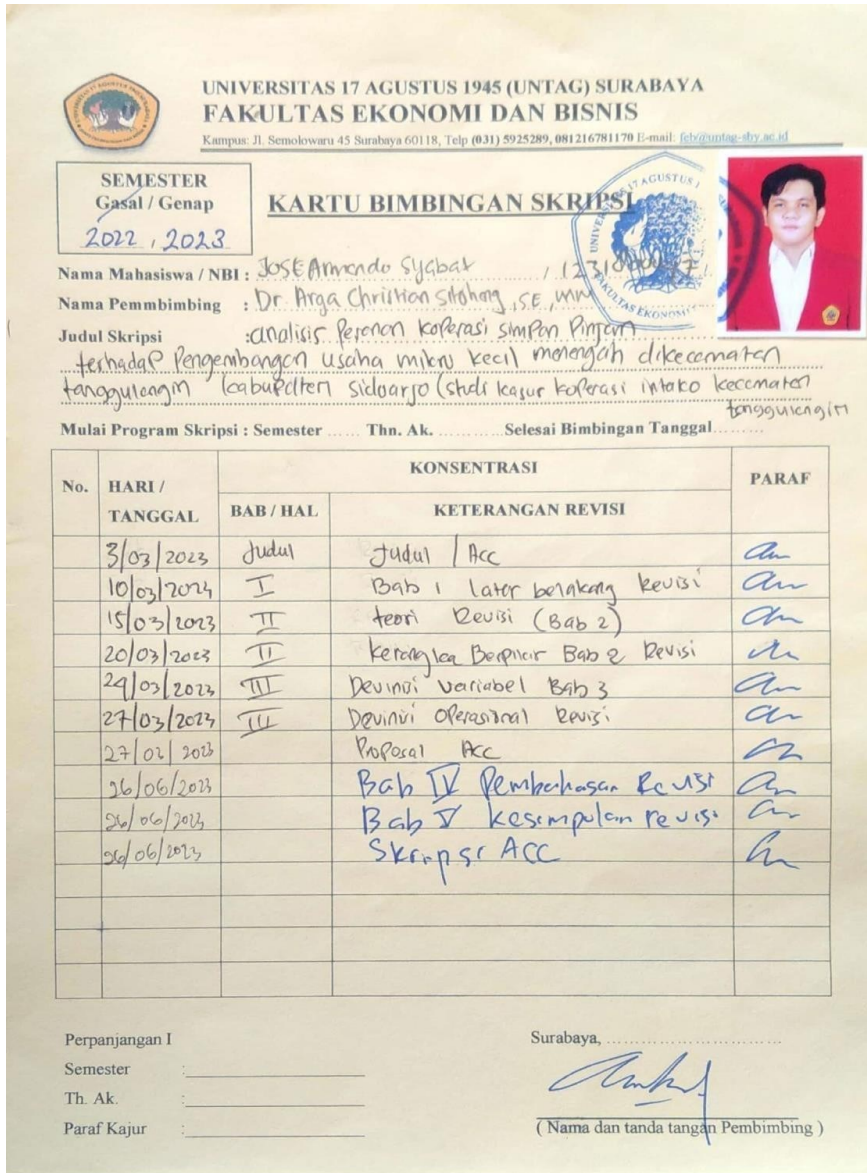 UNIVERSITAS 17 AGUSTUS 1945 (UNTAG) SURABAYA
FAKULTAS EKONOMI DAN BISNIS
Kampus: Jl. Semolowaru 45 Surabaya 60118, Telp (031) 5925289, 081216781170 E-mail: feb@untag-sby.ac.id
SEMESTER
Gasal / Genap
2022, 2023
KARTU BIMBINGAN SKRIPSI
Nama Mahasiswa / NBI : Jose Armondo Syabat /
Nama Pemmbimbing : Dr. Arga Christian Sitohang, SE, MM
Judul Skripsi : analisis Peranan koperasi simpan Pinjam
terhadap Pengembangan usaha mikro kecil menengah dikecamaten
tanggulangin kabupaten sidoarjo (studi kasur koperasi intako kecamaten
tanggulangin
Mulai Program Skripsi : Semester ...... Thn. Ak. ............ Selesai Bimbingan Tanggal.........
No. HARI / TANGGAL KONSENTRASI PARAF
BAB / HAL KETERANGAN REVISI
3/03/2023 Judul Judul / Acc
10/03/2023 I Bab 1 later belakang Revisi
15/03/2023 II teori Revisi (Bab 2)
20/03/2023 II Kerangka Berpikir Bab 2 Revisi
24/03/2023 III Devinisi variabel Bab 3
27/03/2023 III Devinisi Operasional Revisi
27/03/2023 Proposal Acc
26/06/2023 Bab IV Pembahasan Revisi
26/06/2023 Bab V kesimpulan revisi
26/06/2023 Skripsi ACC
Perpanjangan I
Semester :
Th. Ak. :
Paraf Kajur :
Surabaya, ..............................
( Nama dan tanda tangan Pembimbing )